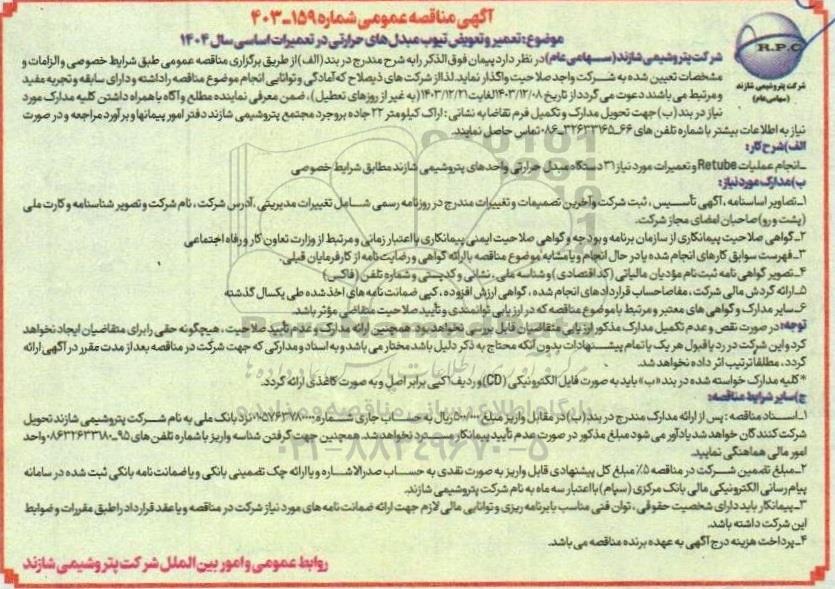 آگهی مناقصه عمومی شماره ۱۵۹-۴۰۳
موضوع: تعمیر و تعویض تیوب مبدل های حرارتی در تعمیرات اساسی سال ۱۴۰۴
R.P.C
شرکت پتروشیمی شازند
(سهامی عام)
شرکت پتروشیمی شازند (سهامی عام) در نظر دارد پیمان فوق الذکر را به شرح مندرج در بند (الف) از طریق برگزاری مناقصه عمومی طبق شرایط خصوصی و الزامات و
مشخصات تعیین شده به شرکت واجد صلاحیت واگذار نماید. لذا از شرکت های ذیصلاح که آمادگی و توانایی انجام موضوع مناقصه را داشته و دارای سابقه و تجربه مفید
و مرتبط می باشند دعوت می گردد از تاریخ ۱۴۰۳/۱۲/۰۸ لغایت ۱۴۰۳/۱۲/۲۱ (به غیر از روزهای تعطیل)، ضمن معرفی نماینده مطلع و آگاه با همراه داشتن کلیه مدارک مورد
نیاز در بند (ب) جهت تحویل مدارک و تکمیل فرم تقاضا به نشانی: اراک کیلومتر ۲۲ جاده بروجرد مجتمع پتروشیمی شازند دفتر امور پیمانها و برآورد مراجعه و در صورت
نیاز به اطلاعات بیشتر با شماره تلفن های ۶۶-۳۲۶۳۳۱۶۵-۰۸۶ تماس حاصل نمایند.
الف) شرح کار:
-انجام عملیات Retube و تعمیرات مورد نیاز ۳۱ دستگاه مبدل حرارتی واحدهای پتروشیمی شازند مطابق شرایط خصوصی
ب) مدارک مورد نیاز:
۱-تصاویر اساسنامه، آگهی تأسیس، ثبت شرکت و آخرین تصمیمات و تغییرات مندرج در روزنامه رسمی شامل تغییرات مدیریتی، آدرس شرکت، نام شرکت و تصویر شناسنامه و کارت ملی
(پشت و رو) صاحبان امضای مجاز شرکت.
۲-گواهی صلاحیت پیمانکاری از سازمان برنامه و بودجه و گواهی صلاحیت ایمنی پیمانکاری با اعتبار زمانی و مرتبط از وزارت تعاون کار و رفاه اجتماعی
۳-فهرست سوابق کارهای انجام شده یا در حال انجام و یا مشابه موضوع مناقصه با ارائه گواهی و رضایت نامه از کارفرمایان قبلی.
۴-تصویر گواهی نامه ثبت نام مؤدیان مالیاتی (کد اقتصادی) و شناسه ملی، نشانی و کدپستی و شماره تلفن (فاکس)
۵-ارائه گردش مالی شرکت، مفاصاحساب قراردادهای انجام شده، گواهی ارزش افزوده، کپی ضمانت نامه های اخذ شده طی یکسال گذشته
۶-سایر مدارک و گواهی های معتبر و مرتبط با موضوع مناقصه که در ارزیابی توانمندی و تأیید صلاحیت متقاضی مؤثر باشد.
توجه: در صورت نقص و عدم تکمیل مدارک مذکور ارزیابی متقاضیان قابل بررسی نخواهد بود. همچنین ارائه مدارک و عدم تأیید صلاحیت، هیچگونه حقی را برای متقاضیان ایجاد نخواهد
کرد و این شرکت در رد یا قبول هر یک یا تمام پیشنهادات بدون آنکه محتاج به ذکر دلیل باشد مختار می باشد و به اسناد و مدارکی که جهت شرکت در مناقصه بعد از مدت مقرر در آگهی ارائه
گردد، مطلقاً ترتیب اثر داده نخواهد شد.
*کلیه مدارک خواسته شده در بند «ب» باید به صورت فایل الکترونیکی (CD) و ردیف ۱ کپی برابر اصل و به صورت کاغذی ارائه گردد.
ج) سایر شرایط مناقصه:
۱-اسناد مناقصه: پس از ارائه مدارک مندرج در بند (ب) در مقابل واریز مبلغ ۵۰۰/۰۰۰ ریال به حساب جاری شماره ۰۱۰۵۷۶۳۷۸۰۰۰۰ نزد بانک ملی به نام شرکت پتروشیمی شازند تحویل
شرکت کنندگان خواهد شد یادآور می شود مبلغ مذکور در صورت عدم تأیید پیمانکار مسترد نخواهد شد. همچنین جهت گرفتن شناسه واریز با شماره تلفن های ۹۵-۰۸۶۳۲۶۳۳۱۸۰ واحد
امور مالی هماهنگی نمایید.
۲-مبلغ تضمین شرکت در مناقصه ۵٪ مبلغ کل پیشنهادی قابل واریز به صورت نقدی به حساب صدرالاشاره و یا ارائه چک تضمینی بانکی و یا ضمانت نامه بانکی ثبت شده در سامانه
پیام رسانی الکترونیکی مالی بانک مرکزی (سپام) با اعتبار سه ماه به نام شرکت پتروشیمی شازند.
۳-پیمانکار باید دارای شخصیت حقوقی، توان فنی مناسب با برنامه ریزی و توانایی مالی لازم جهت ارائه ضمانت نامه های مورد نیاز شرکت در مناقصه و یا عقد قرارداد را طبق مقررات و ضوابط
این شرکت داشته باشد.
۴-پرداخت هزینه درج آگهی به عهده برنده مناقصه می باشد.
روابط عمومی و امور بین الملل شرکت پتروشیمی شازند
۰۲۱-۸۸۳۴۹۶۷۰-۵